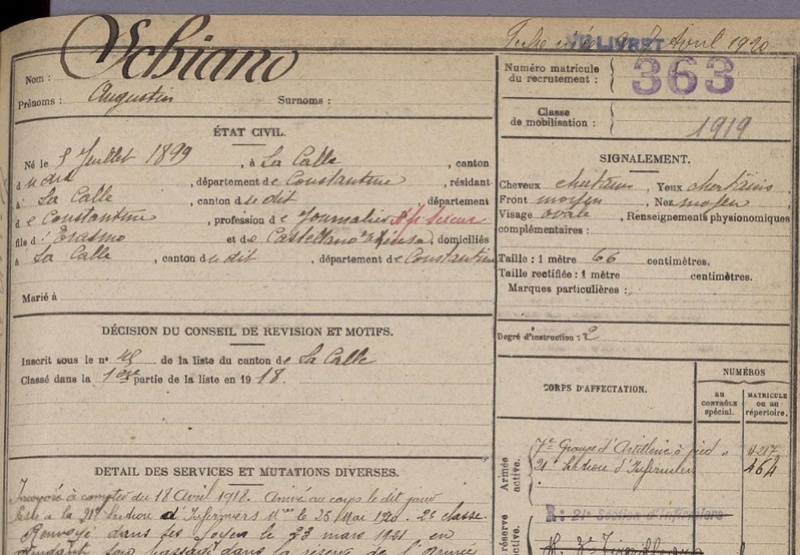 Avril 1920
LIVRET
Nom : Schiano
Prénoms : Augustin Surnoms :
Numéro matricule du recrutement : 363
Classe de mobilisation : 1919
ÉTAT CIVIL.
Né le 5 Juillet 1899, à La Calle, canton
d udit, département de Constantine, résidant
à La Calle, canton dudit département
de Constantine, profession de Journalier
fils d'Erasmo et de Castellano, domiciliés
à La Calle, canton dudit, département de Constantine
Marié à
SIGNALEMENT.
Cheveux chatains, Yeux chatains
Front moyen, Nez moyen
Visage ovale, Renseignements physionomiques
complémentaires :
Taille : 1 mètre 66 centimètres.
Taille rectifiée : 1 mètre centimètres.
Marques particulières :
Degré d'instruction : 2
DÉCISION DU CONSEIL DE REVISION ET MOTIFS.
Inscrit sous le n° de la liste du canton de La Calle
Classé dans la 1ère partie de la liste en 1918.
CORPS D'AFFECTATION.
NUMÉROS
AU CONTRÔLE spécial.
MATRICULE ou au répertoire.
Armée active.
7e Groupe d'Artillerie à pied
21e Section d'Infirmiers 464
réserve
R : 21e Section d'Infirmiers
DETAIL DES SERVICES ET MUTATIONS DIVERSES.
Incorporé à compter du 18 Avril 1918. Arrivé au corps le dit jour
à la 21e Section d'Infirmiers le 26 Mai 1920. 2e classe
Renvoyé dans ses foyers le 23 mars 1921 en
passage dans la réserve de l'Armée